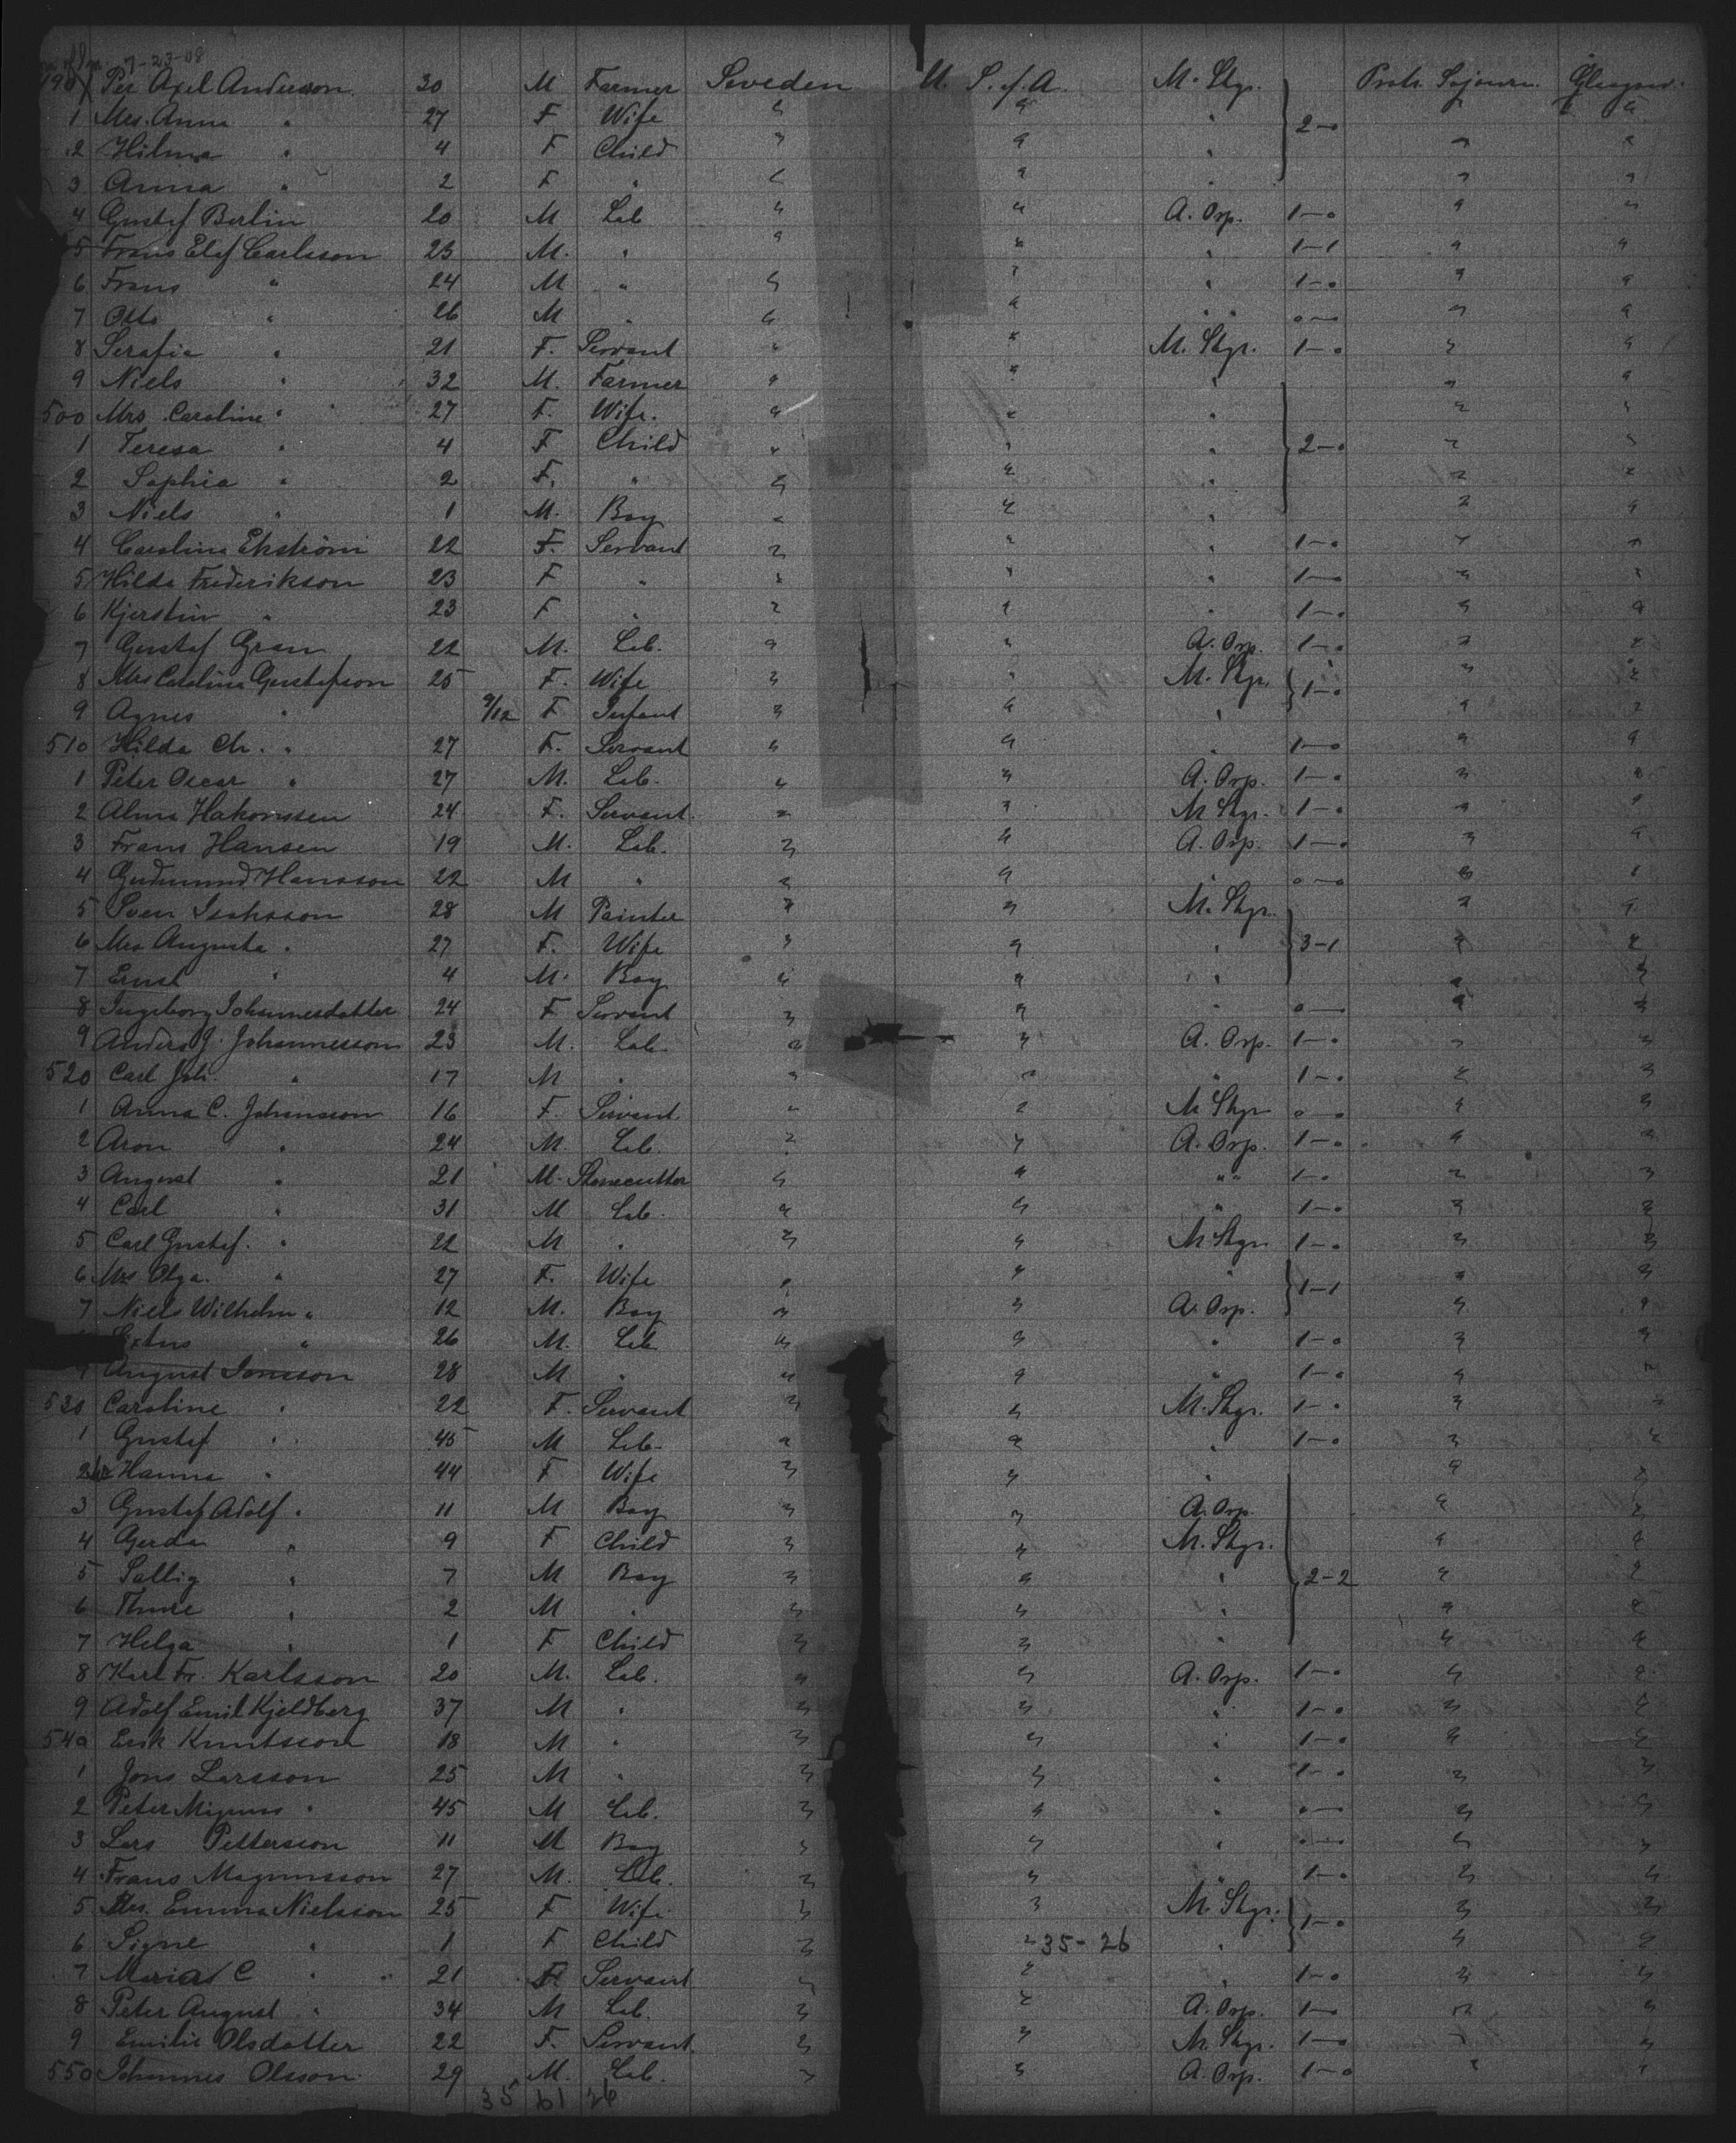 7-23-08
490 Per Axel Anderson 30 M Farmer Sweden U. S. of A. M. Stgr. Protr. Sojourn. Glasgow.
1 Mrs. Anna " 27 F Wife " " " 2-0 " "
2 Hilma " 4 F Child " " " " "
3 Anna " 2 F " " " " " "
4 Gustef Berlin 20 M Lab " " A. Orp. 1-0 " "
5 Frans Elof Carlsson 23 M. " " " " 1-1 " "
6 Frans " 24 M " " " " 1-0 " "
7 Otto " 26 M " " " " " 0-0 " "
8 Serafia " 21 F. Servant " " M. Stgr. 1-0 " "
9 Niels " 32 M. Farmer " " " " "
500 Mrs. Caroline " 27 F. Wife. " " " " "
1 Teresa " 4 F Child " " " 2-0 " "
2 Sophia " 2 F. " " " " " "
3 Niels " 1 M. Boy " " " " "
4 Carolina Ekström 22 F. Servant " " " 1-0 " "
5 Hilda Frederikson 23 F " " " " 1-0 " "
6 Kjerstin " 23 F " " " " 1-0 " "
7 Gustaf Gran 22 M. Lab. " " A. Orp. 1-0 " "
8 Mrs Carolina Gustafson 25 F. Wife " " M. Stgr. 1-0 " "
9 Agnes " 9/12 F Infant " " " " "
510 Hilda Ch. " 27 F. Servant " " " 1-0 " "
1 Peter Oscar " 27 M. Lab. " " A. Orp. 1-0 " "
2 Alma Hakonssen 24 F. Servant. " " M. Stgr. 1-0 " "
3 Frans Hansen 19 M. Lab. " " A. Orp. 1-0 " "
4 Gudmund Hansson 22 M " " " " 0-0 " "
5 Sven Isaksson 28 M Painter " " M. Stgr. " "
6 Mrs Augusta " 27 F. Wife " " " 3-1 " "
7 Ernst " 4 M. Boy " " " " " "
8 Ingeborg Johannesdatter 24 F Servant " " " 0- " "
9 Anders J. Johannesson 23 M. Lab " " A. Orp. 1-0 " "
520 Carl Joh. " 17 M " " " " 1-0 " "
1 Anna C. Johansson 16 F. Servant. " " M. Stgr 0-0 " "
2 Aron " 24 M. Lab. " " A. Orp. 1-0 " "
3 August " 21 M. Stonecutter " " " " 1-0 " "
4 Carl " 31 M Lab. " " " 1-0 " "
5 Carl Gustaf. " 22 M " " " M. Stgr. 1-0 " "
6 Mrs Olga. " 27 F. Wife " " " 1-1 " "
7 Niels Wilhelm " 12 M. Boy " " A. Orp. " "
" 26 M. Lab " " " 1-0 " "
9 August Jonsson 28 M " " " " 1-0 " "
530 Caroline " 22 F. Servant " " M. Stgr. 1-0 " "
1 Gustef " 45 M Lab. " " " 1-0 " "
2 Hanna " 44 F Wife " " " " "
3 Gustaf Adolf " 11 M Boy " " A. Orp " "
4 Gerda " 9 F Child " " M. Stgr. " "
5 " 7 M Boy " " " 2-2 " "
6 Thure " 2 M " " " " " "
7 Helga " 1 F Child " " " " "
8 Karl Fr. Karlsson 20 M. Lab. " " A. Orp. 1-0 " "
9 Adolf Emil Kjeldberg 37 M " " " " 1-0 " "
540 Erik Knutsson 18 M " " " " 1-0 " "
1 Jons Larsson 25 M " " " " 1-0 " "
2 Peter Magnus " 45 M Lab. " " " 0-0 " "
3 Lars Pettersson 11 M Boy " " " 0-0 " "
4 Frans Magnusson 27 M. Lab. " " " 1-0 " "
5 Mrs. Emma Nielsson 25 F Wife " " M. Stgr. 1-0 " "
6 Signe " 1 F Child " " 35-26 " " "
7 Maria C " " 21 F. Servant " " " 1-0 " "
8 Peter August " 34 M Lab. " " A. Orp. 1-0 " "
9 Emilie Olsdatter 22 F. Servant " " M. Stgr. 1-0 " "
550 Johannes Olsson 29 M. Lab. " " A. Orp. 1-0 " "
35 61 26